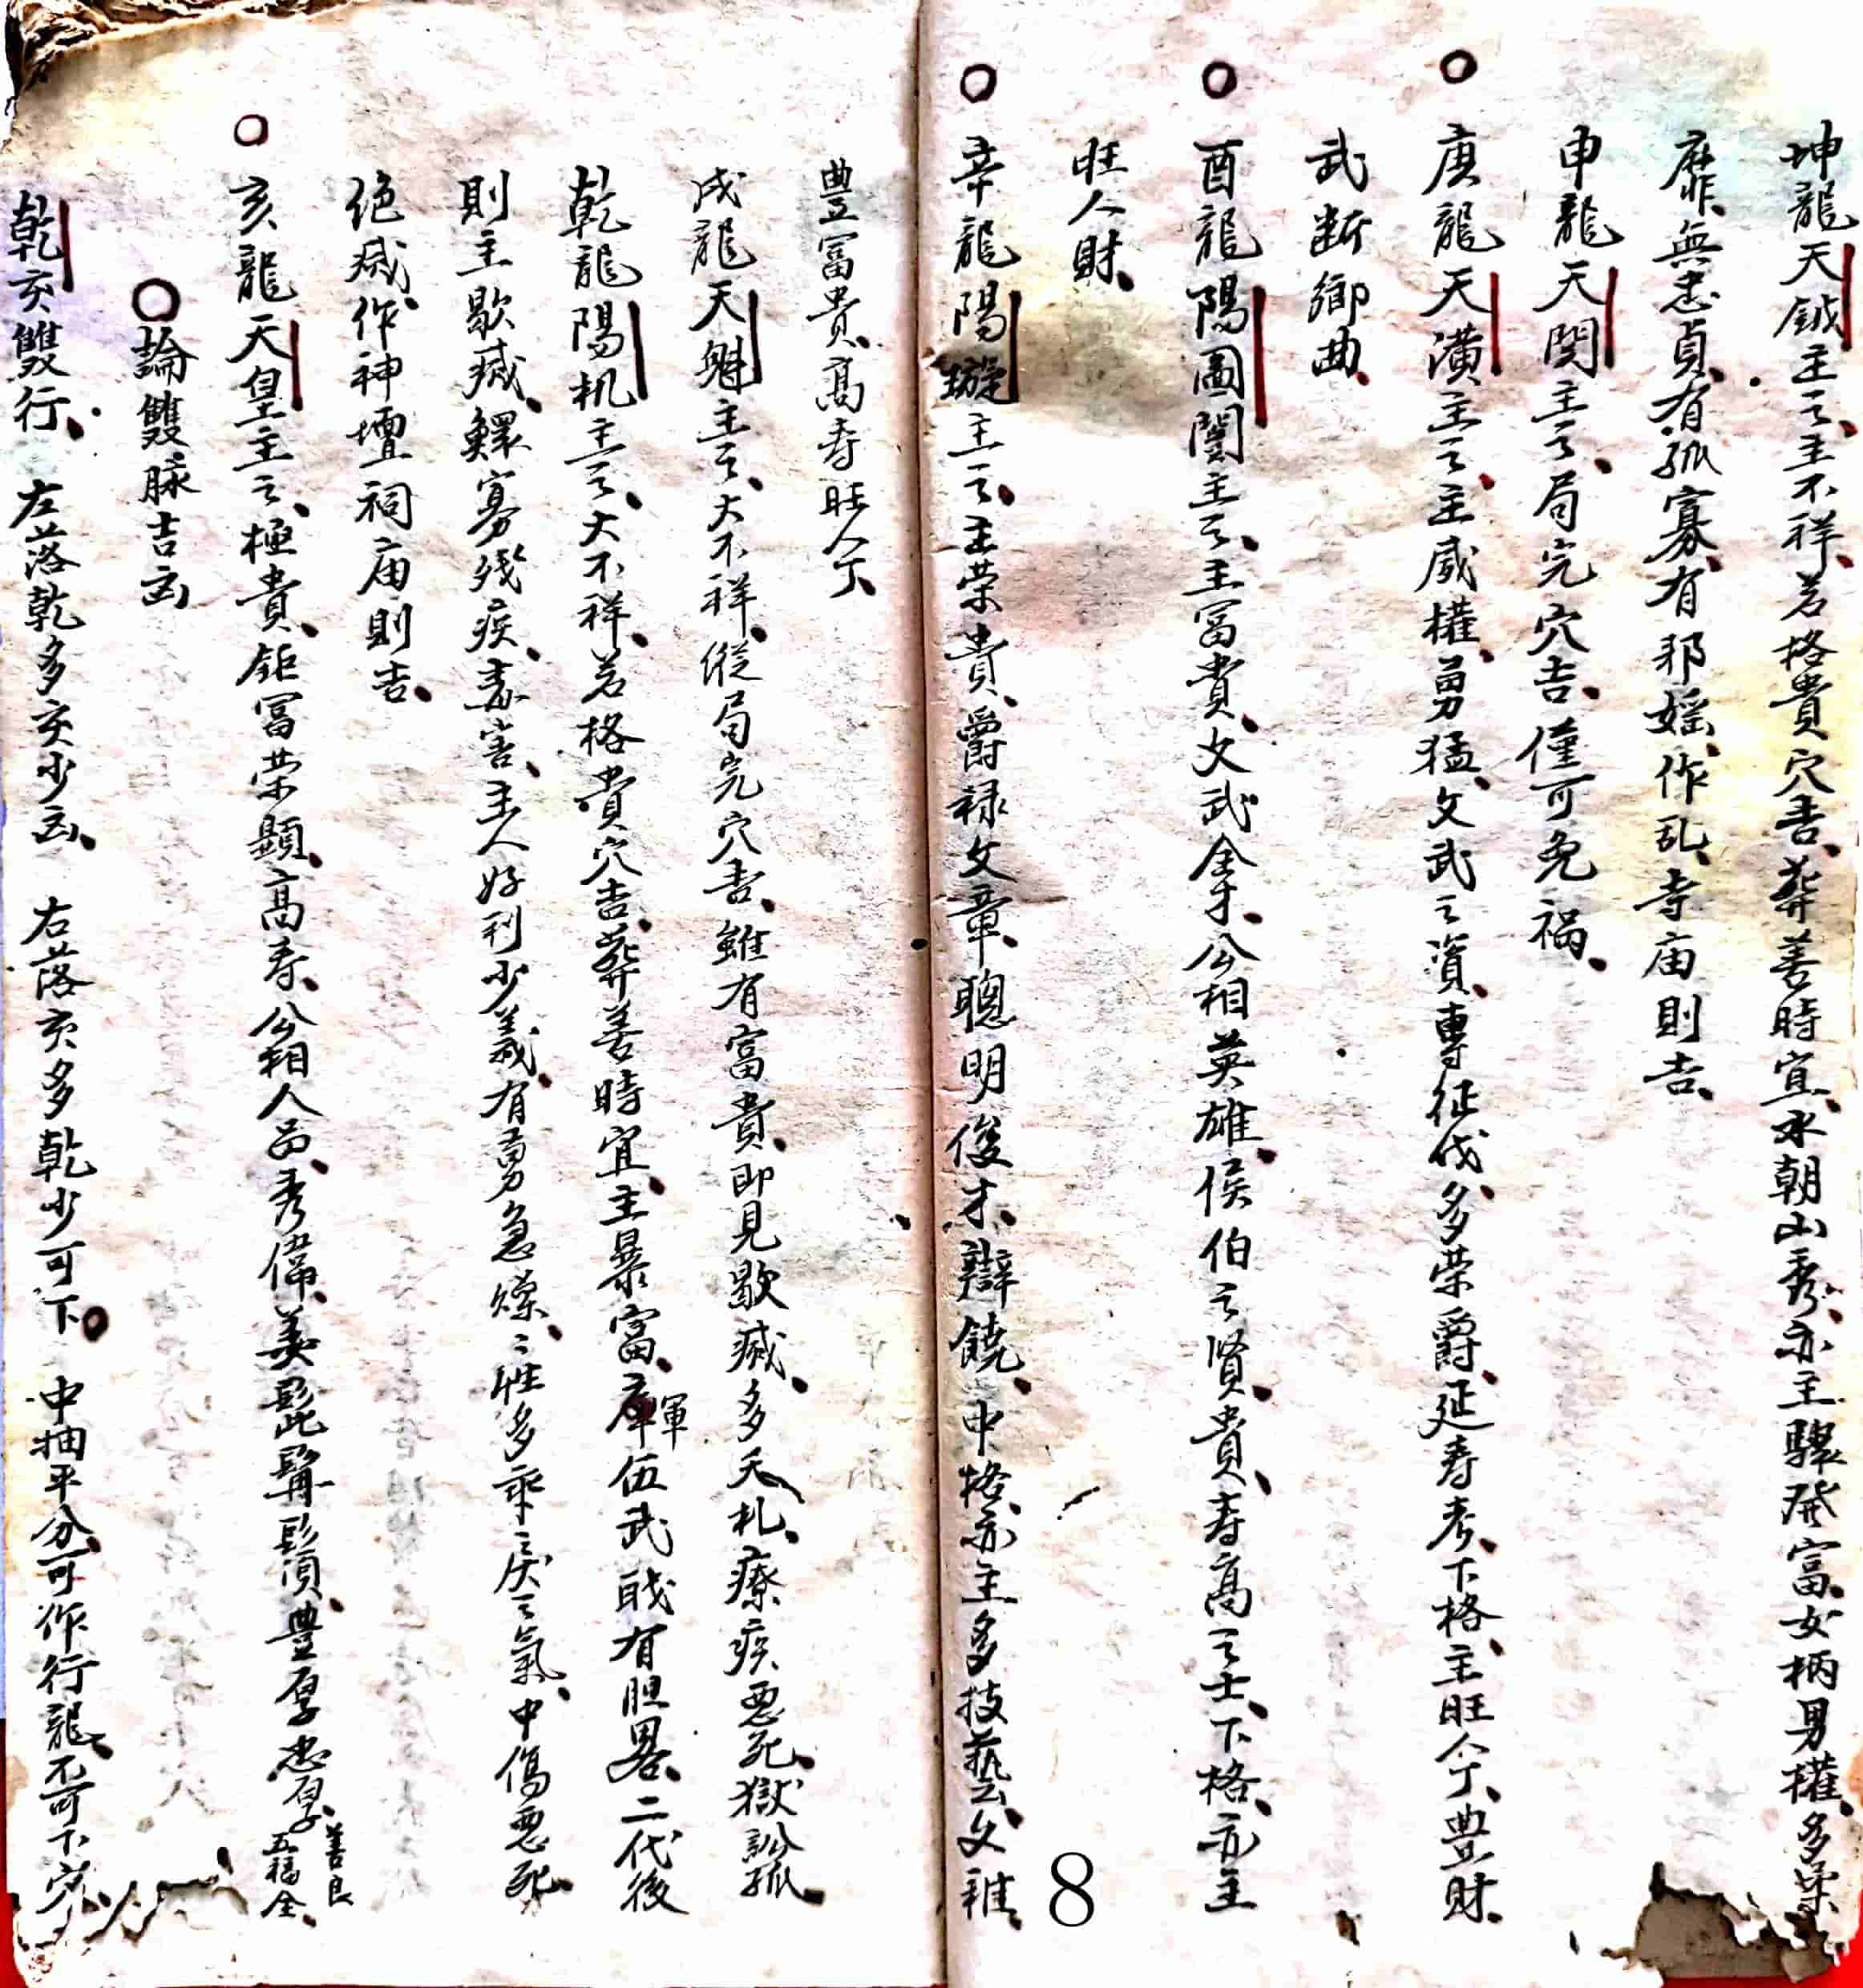 坤龍天鉞主之、主不祥、若格貴穴吉、葬善時宜、水朝山秀、亦主驟發富、女柄男權、多柔
靡、無忠貞、有孤寡、有邪婬、作乱、寺庙則吉、
申龍天関主之、局完穴吉、僅可免禍、
庚龍天潢主之、主威權、勇猛、文武之資、專征伐、多荣爵、延寿考、下格、主旺人丁、豊財
武断鄉曲、
酉龍陽圖闓主之、主富貴、文武全才、公相英雄、侯伯之賢、貴、寿高之士、下格、亦主
旺人財、
辛龍陽璇主之、主荣貴、爵禄文章、聰明俊才、辯饒、中格、亦主多技藝、文雅、
豊富貴、高寿旺人丁、
戌龍天魁主之、大不祥、縱局完穴吉、雖有富貴、即見歇滅、多夭札、療疾悪死、獄訟孤、
乾龍陽机主之、大不祥、若格貴穴吉、葬善時宜、主暴富、軍伍武職有胆畧、二代後
則主歇滅、鰥寡残疾、毒害、主人好刊少義、有勇急燥、〻性多乖〻戾之氣、中傷悪死、
绝滅、作神壇祠庙則吉、
亥龍天皇主之、極貴、鉅富荣顯、高寿、公相人品、秀偹、美髭髯鬚、豊厚忠厚、善良五福全、
論雙脉吉凶
乾亥雙行、左落乾多亥少凶、右落亥多乾少可下。中抽平分、可作行龍、不可下穴、
8